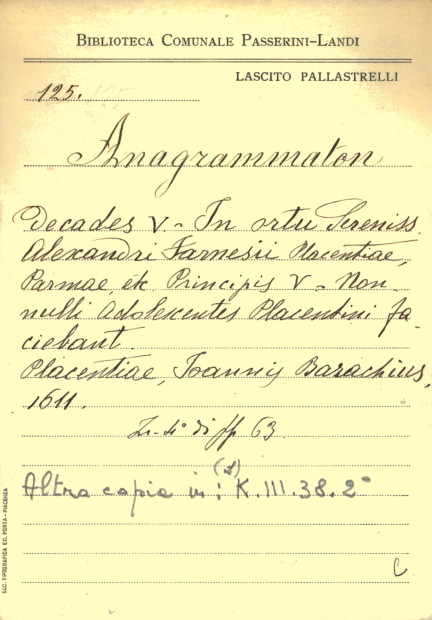 BIBLIOTECA COMUNALE PASSERINI-LANDI
LASCITO PALLASTRELLI
125.
Anagrammaton
Decades V - In ortu Sereniss.
Alexandri Farnesii Placentiae,
Parmae, etc Principis V - Non-
nulli Adolescentes Placentini fa-
ciebant.
Placentiae, Joannis Barachius,
1611.
In-4° di pp 63.
Altra copia in: (1) K.III.38.2°
C
SOC. TIPOGRAFICA ED. PORTA - PIACENZA